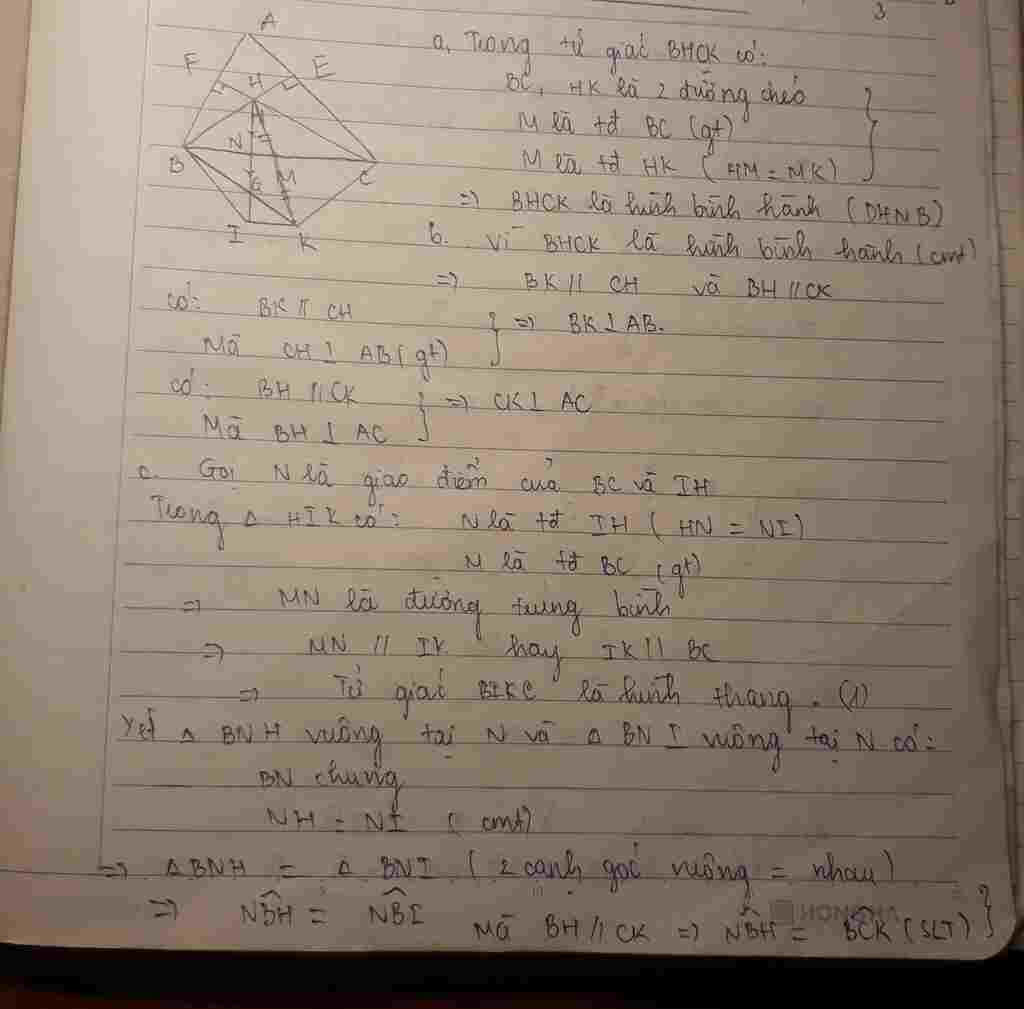 3
A
F
H
E
N
B
G
M
C
I
K
a, Trong tứ giác BHCK có:
BC, HK là 2 đường chéo
M là tđ BC (gt)
M là tđ HK (HM = MK)
=> BHCK là hình bình hành (DHNB)
b. Vì BHCK là hình bình hành (cmt)
=> BK // CH và BH // CK
có: BK // CH
Mà CH ⊥ AB (gt)
=> BK ⊥ AB.
có: BH // CK
Mà BH ⊥ AC
=> CK ⊥ AC
c. Gọi N là giao điểm của BC và IH
Trong Δ HIK có: N là tđ IH (HN = NI)
M là tđ BC (gt)
=> MN là đường trung bình
=> MN // IK hay IK // BC
=> Tứ giác BIKC là hình thang. (1)
Xét Δ BNH vuông tại N và Δ BNI vuông tại N có:
BN chung
NH = NI (cmt)
=> Δ BNH = Δ BNI (2 cạnh góc vuông = nhau)
=> NBH = NBI Mà BH // CK => NBH = BCK (SLT)
HONG HA